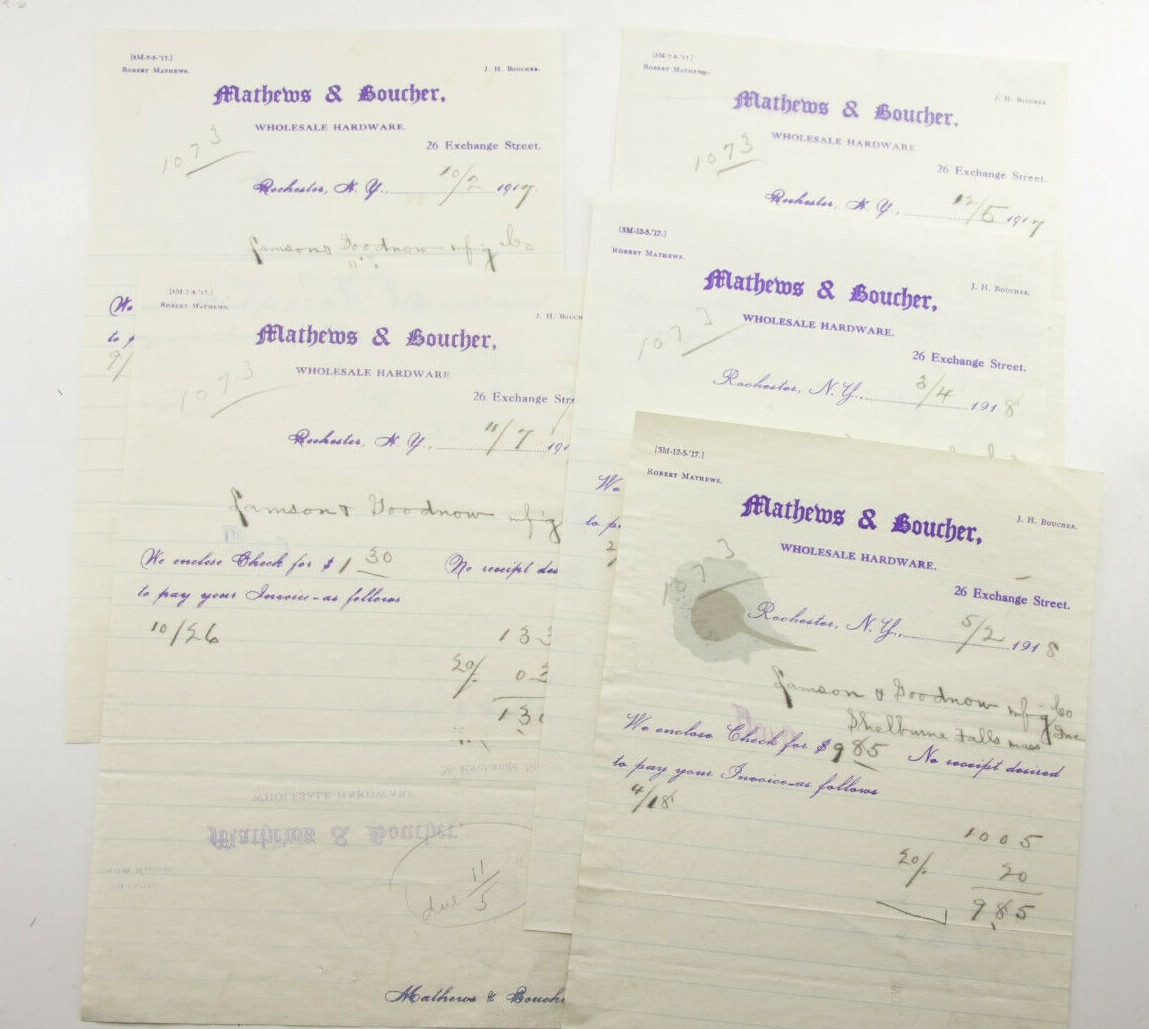 [5M-7-8-'17.]
Robert Mathews.
J. H. Boucher.
Mathews & Boucher,
WHOLESALE HARDWARE.
26 Exchange Street.
1073
Rochester, N. Y., 10/2 1917
Lamson & Goodnow mf'g Co
We
to p
9/
[5M-7-8-'17.]
Robert Mathews.
J. H. Boucher
Mathews & Boucher,
WHOLESALE HARDWARE
26 Exchange Street.
1073
Rochester, N. Y., 12/5 1917
[5M-7-8-'17.]
Robert Mathews
J. H. Bouch
Mathews & Boucher,
WHOLESALE HARDWARE
26 Exchange Stre
1073
Rochester, N. Y., 11/7 191
Lamson & Goodnow mf'g
We enclose Check for $ 1 30 No receipt des
to pay your Invoice-as follows
10/26
133
2%
03
130
WHOLESALE HARDWARE
Mathews & Boucher,
due 11/5
Mathews & Bouche
[5M-12-5-'17.]
Robert Mathews.
J. H. Boucher.
Mathews & Boucher,
WHOLESALE HARDWARE.
26 Exchange Street.
1073
Rochester, N. Y., 3/4 1918
We
to p
[5M-12-5-'17.]
Robert Mathews.
J. H. Boucher.
Mathews & Boucher,
WHOLESALE HARDWARE.
26 Exchange Street.
1073
Rochester, N. Y., 5/2 1918
Lamson & Goodnow mf'g Co
Inc
Shelburne Falls mass
We enclose Check for $ 985 No receipt desired
to pay your Invoice-as follows
4/18
1005
2%
20
985